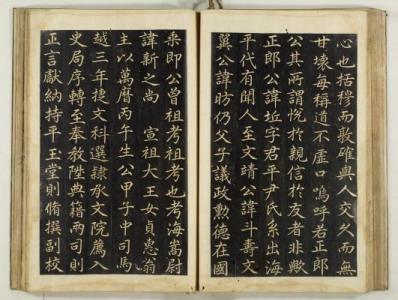 心也括穆而敭確與人交久而無
甘壞每稱道不虛口嗚呼若正郎
公其所謂恱於親信於友者非歟
正郎公諱坵字君平尹氏系出海
平代有聞人至文靖公諱斗壽文
翼公諱昉仍父子議政勲德在國
乘即公曾祖考祖考也考海嵩尉
諱新之尚 宣祖大王女貞惠翁
主以萬曆丙午生公甲子中司馬
越三年捷文科選隷承文院薦入
史局序轉至奉敎陞典籍兩司則
正言獻納持平 玉堂則脩撰副校